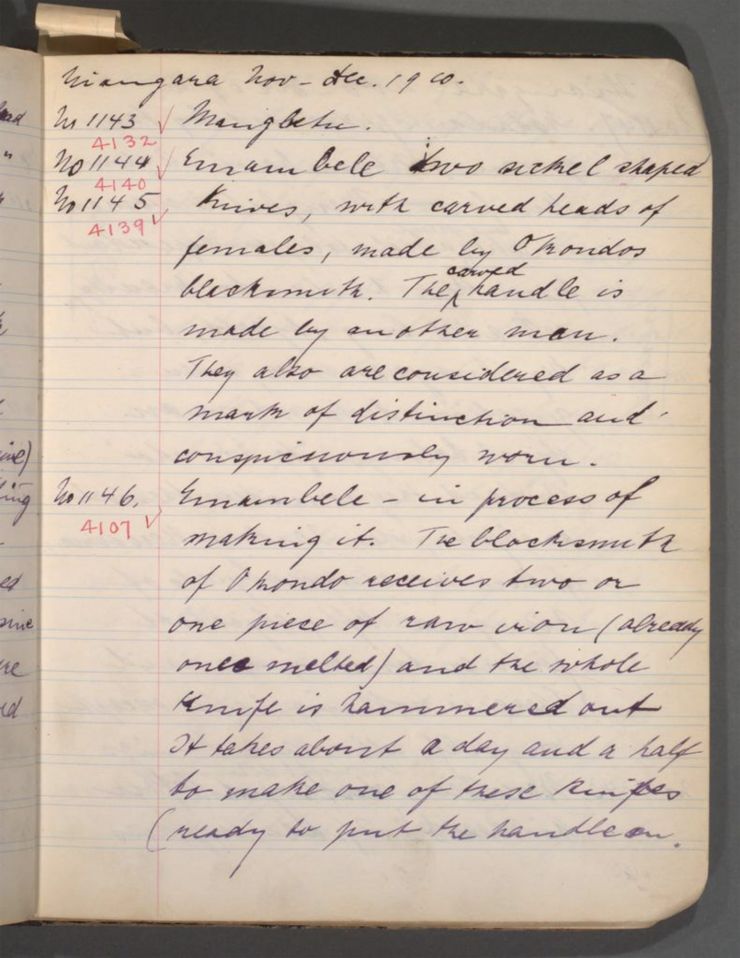 Niangara Nov - Dec. 1910.
No 1143 √ Mangbetu.
4132
No 1144 √ Emambele two sickel shaped
4140
No 1145 Knives, with carved heads of
4139 √
females, made by Okondos
blacksmith. The carved handle is
made by another man.
They also are considered as a
mark of distinction and
conspicuously worn.
No 1146. Emambele - in process of
4107 √
making it. The blacksmith
of Okondo receives two or
one piece of raw iron (already
once melted) and the whole
Knife is hammered out
It takes about a day and a half
to make one of these Knifes
(ready to put the handle on.